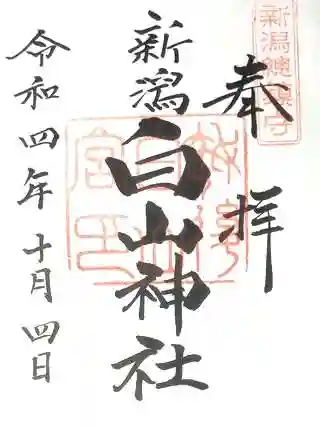 新潟總鎮守
奉拝
新潟
白山神社
令和四年十月四日